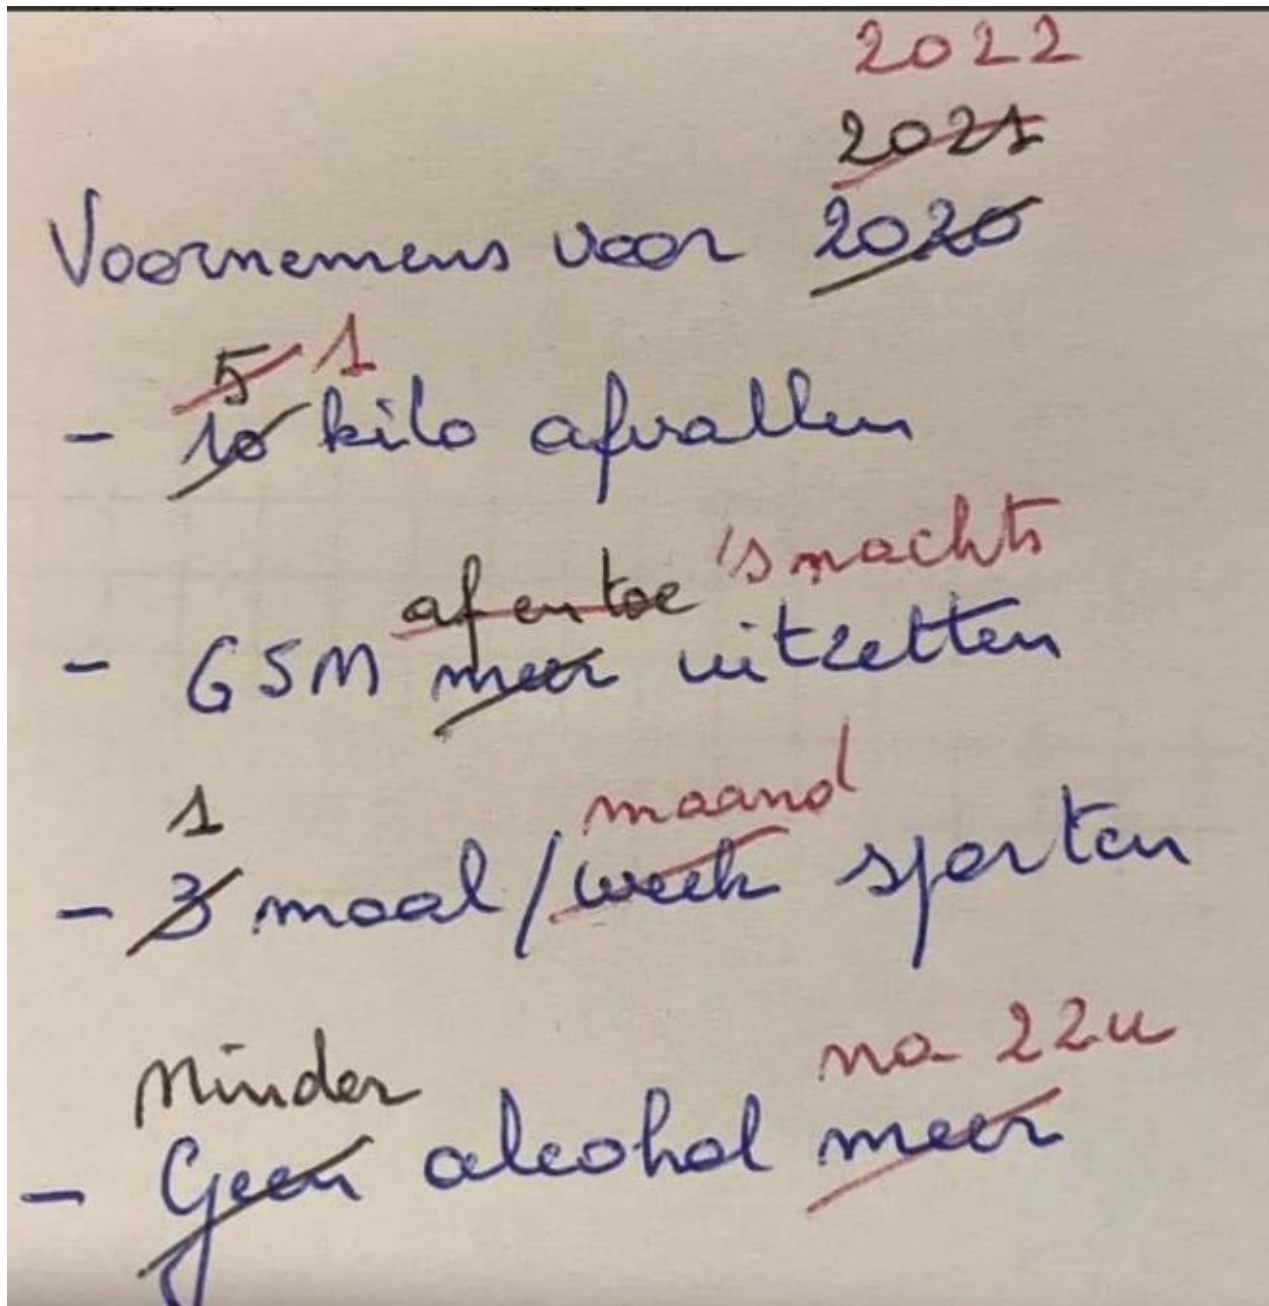 2022
2021
Voornemens voor 2020
5 1
- 10 kilo afvallen
af en toe 's nachts
- GSM meer uitzetten
1 maand
- 3 maal/week sporten
Minder na 22u
- Geen alcohol meer